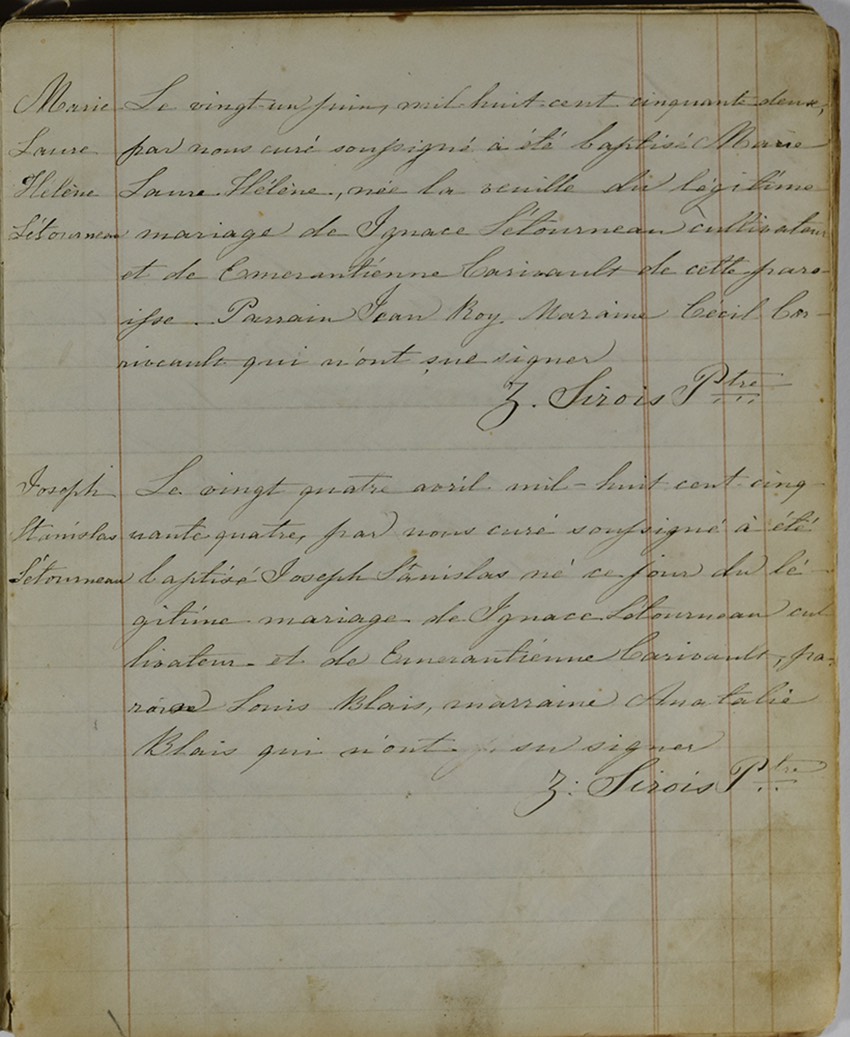 Marie Le vingt-un juin, mil-huit-cent cinquante-deux,
Laure par nous curé soussigné a été baptisé Marie
Helène Laure Hélène, née la veuille du légitime
Létourneau mariage de Ignace Létourneau cultivateur
et de Emerantienne Carivault de cette paro-
isse. Parrain Jean Roy Maraine Cécil Cor-
rivcault qui n'ont sue signer
Z. Sirois Ptre
Joseph Le vingt quatre avril mil-huit cent cinq-
Stanislas uante quatre, par nous curé soussigné à été
Létourneau baptisé Joseph Stanislas né ce jour du lé-
gitime mariage de Ignace Létourneau cul-
tivateur et de Emerantienne Carivault, pa-
Louis Blais, marraine Anatalie
Blais qui n'ont su signer
Z. Sirois Ptre